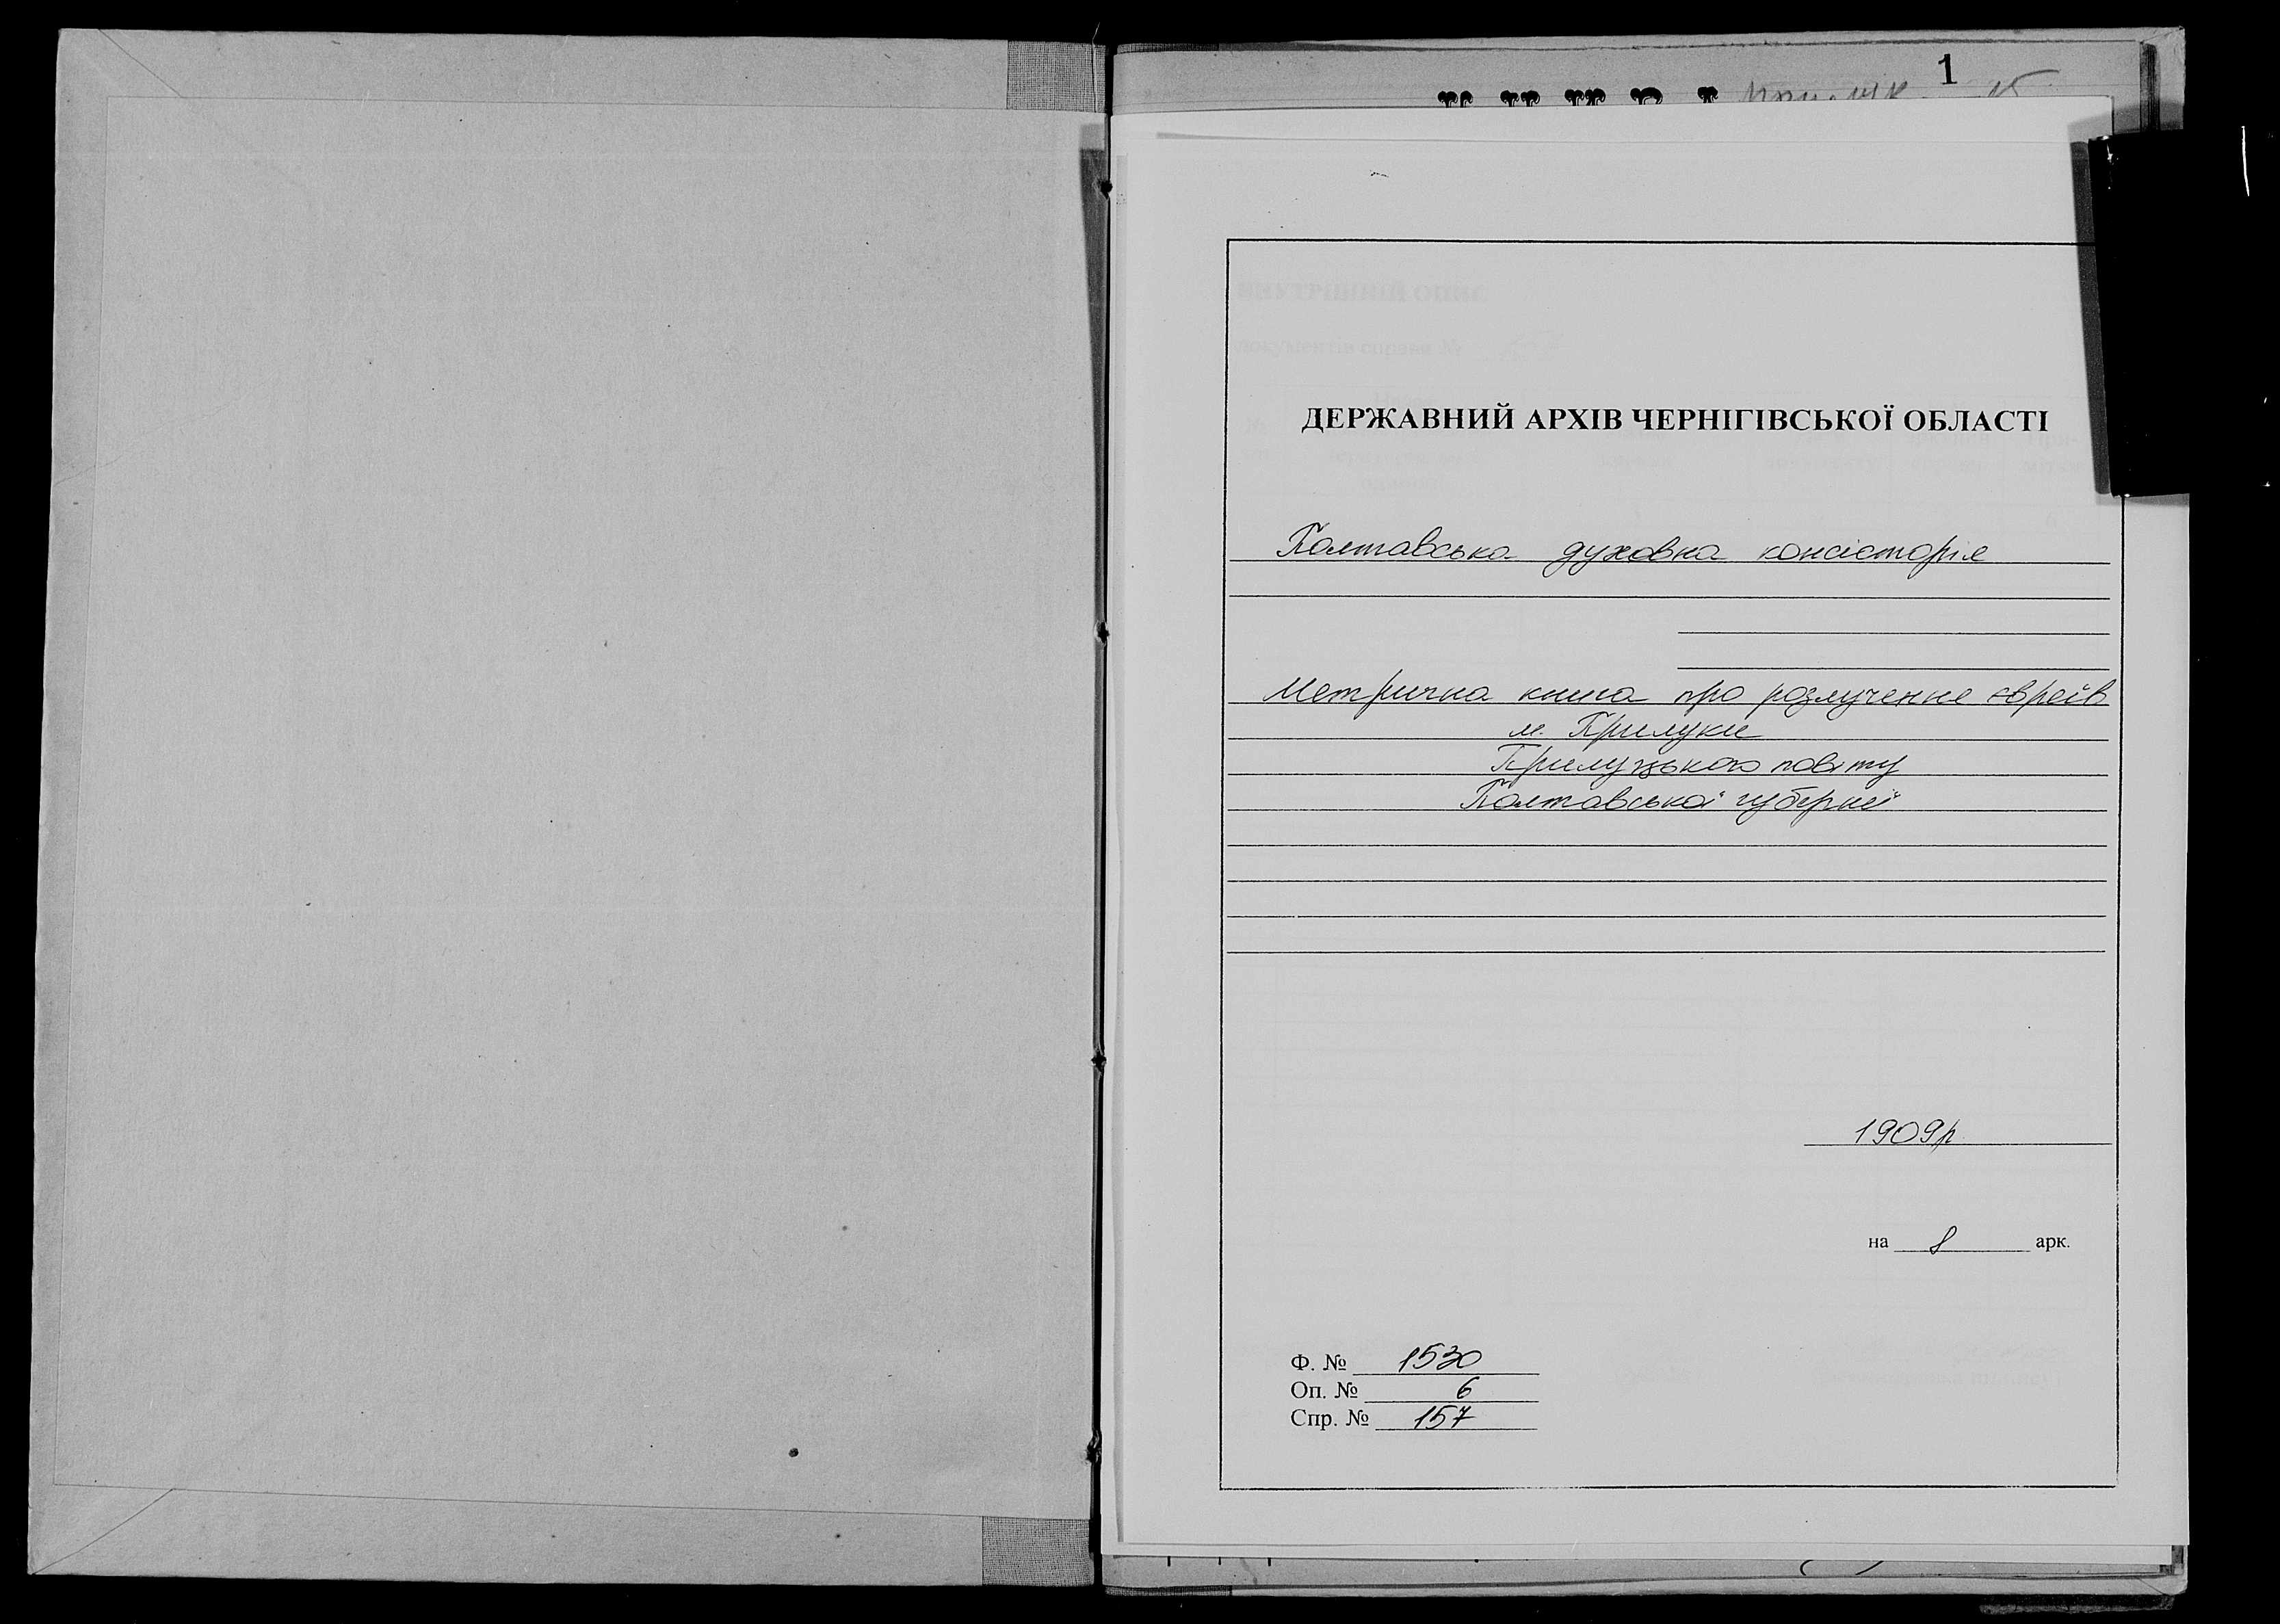 1
ДЕРЖАВНИЙ АРХІВ ЧЕРНІГІВСЬКОЇ ОБЛАСТІ
Полтавська духовна консісторія
Метрична книга про розлучення євреїв
м. Прилуки
Прилуцького повіту
Полтавської губернії
1909р
на 8 арк.
Ф. № 1530
Оп. № 6
Спр. № 157